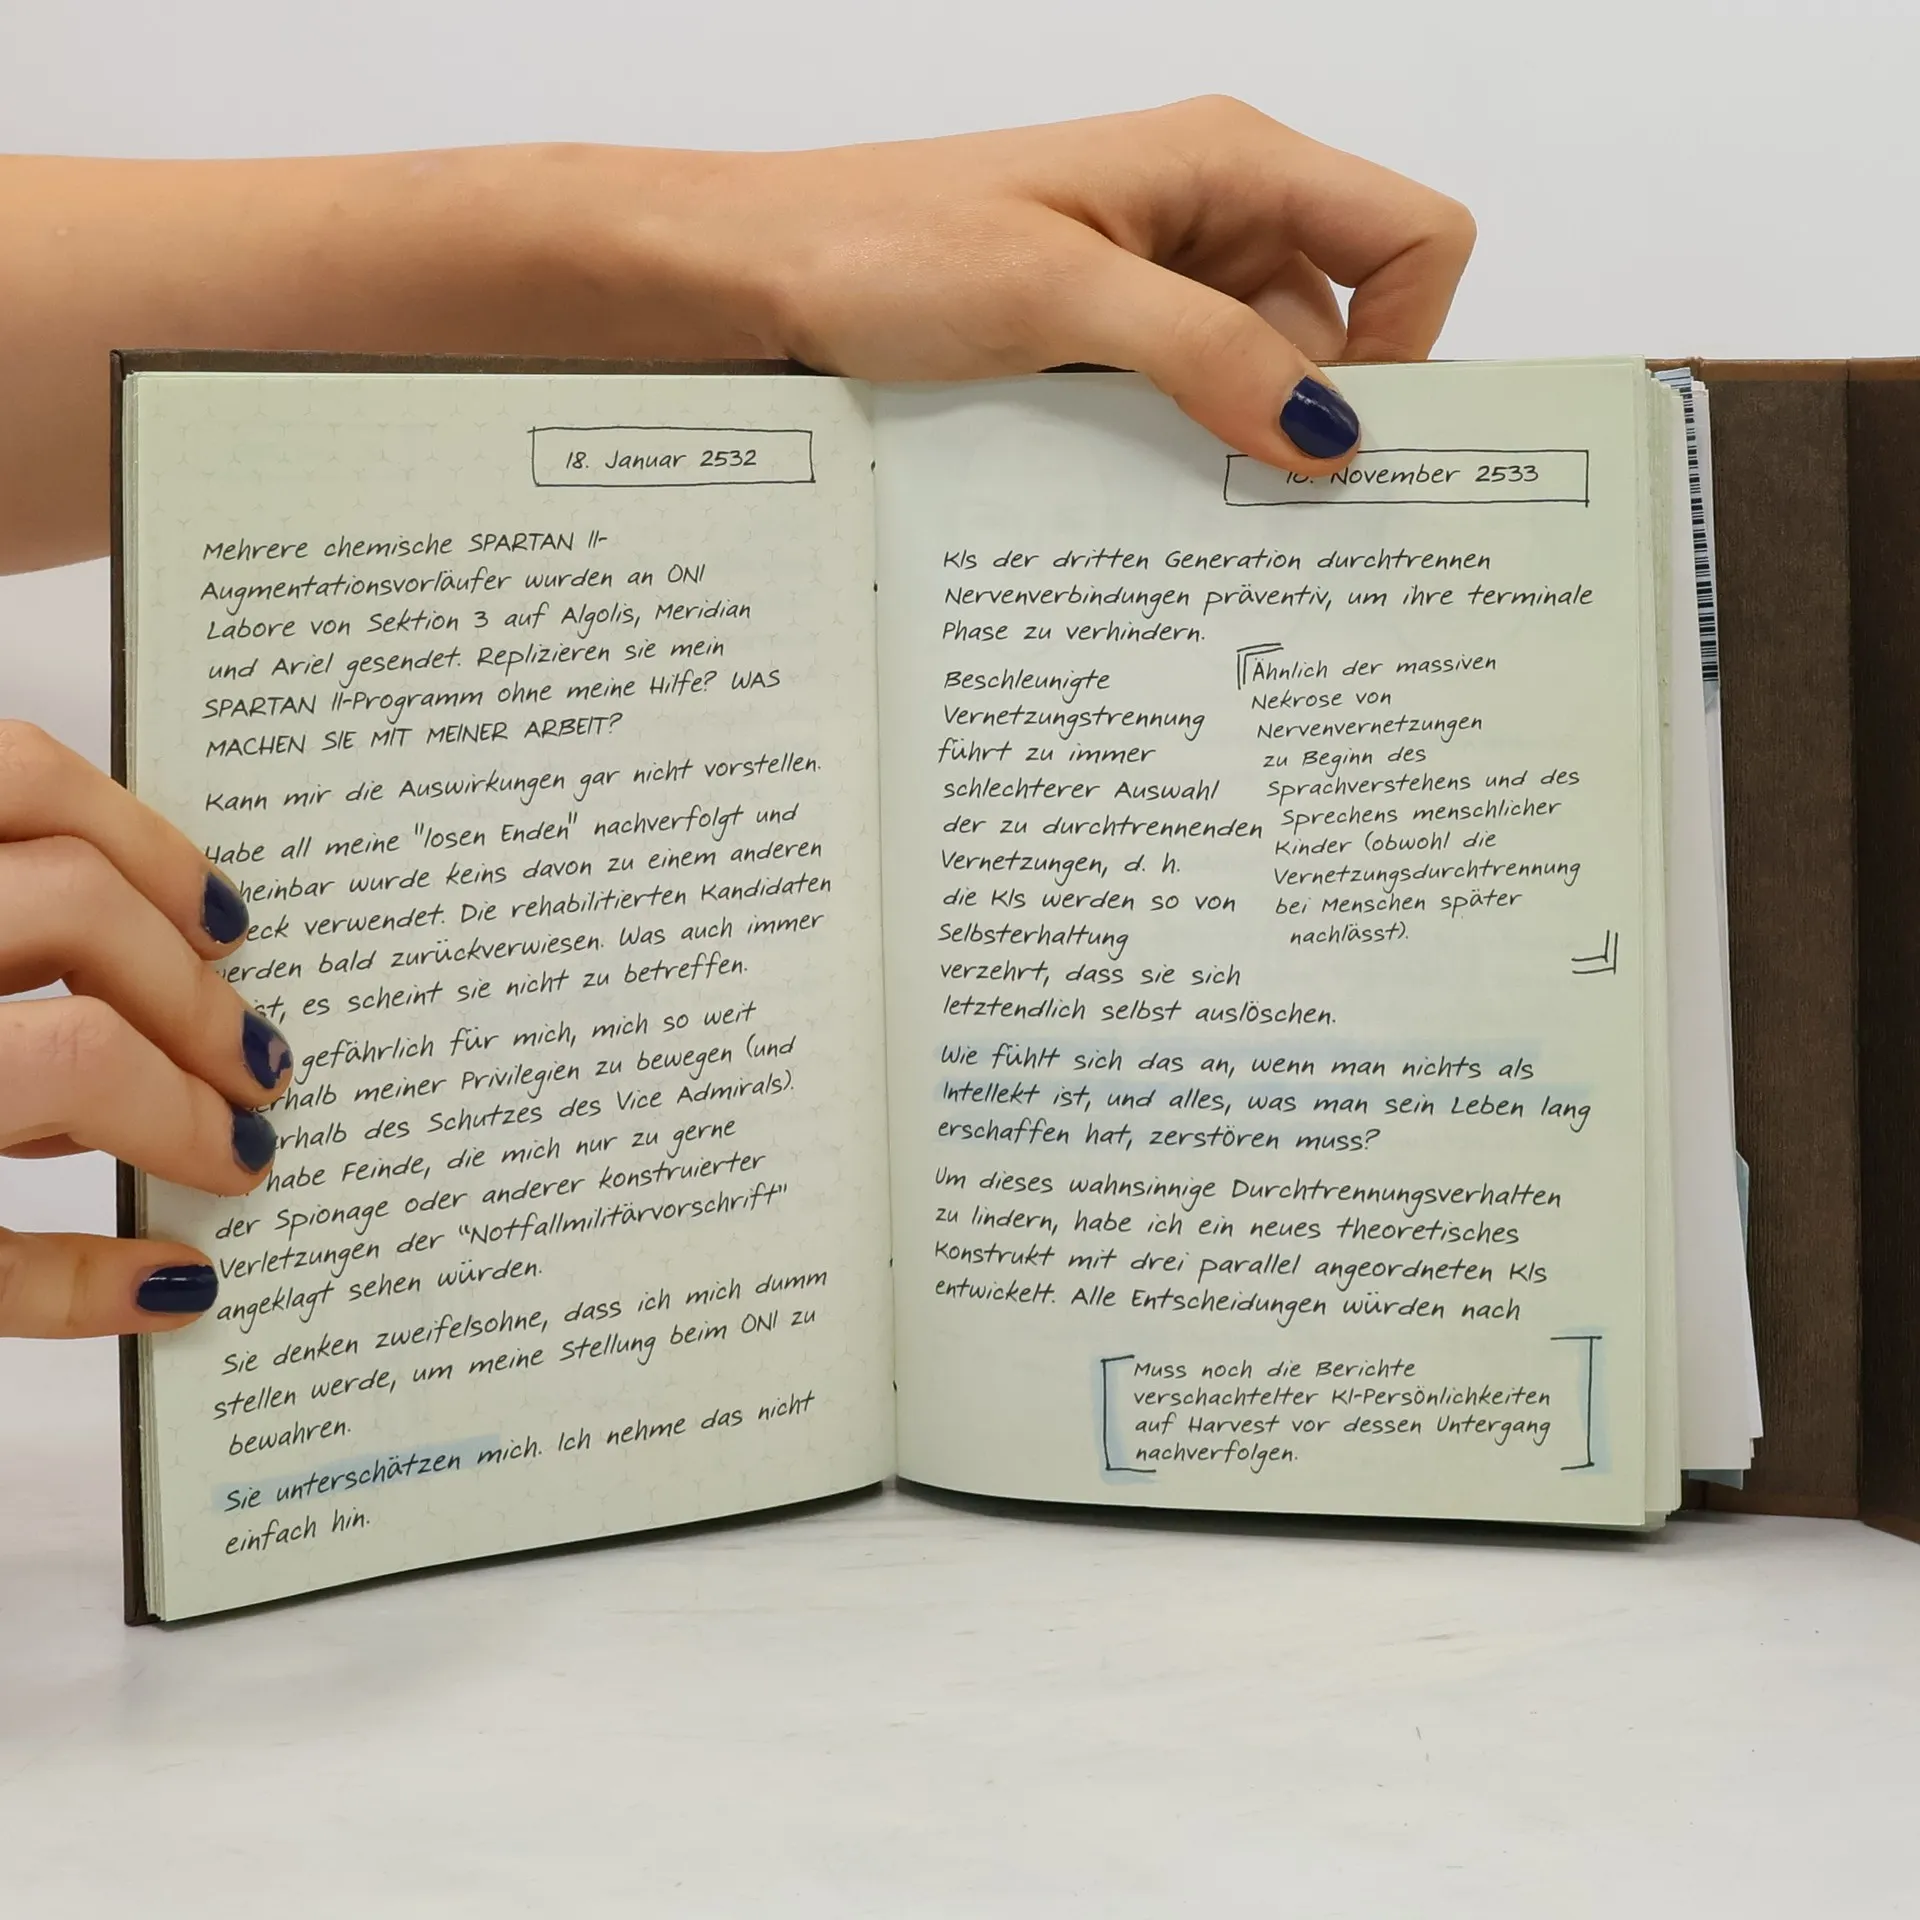 18. Januar 2532
Mehrere chemische SPARTAN II-
Augmentationsvorläufer wurden an ONI
Labore von Sektion 3 auf Algolis, Meridian
und Ariel gesendet. Replizieren sie mein
SPARTAN II-Programm ohne meine Hilfe? WAS
MACHEN SIE MIT MEINER ARBEIT?
Kann mir die Auswirkungen gar nicht vorstellen.
Habe all meine "losen Enden" nachverfolgt und
heinbar wurde keins davon zu einem anderen
eck verwendet. Die rehabilitierten Kandidaten
werden bald zurückverwiesen. Was auch immer
ist, es scheint sie nicht zu betreffen.
gefährlich für mich, mich so weit
erhalb meiner Privilegien zu bewegen (und
erhalb des Schutzes des Vice Admirals).
habe Feinde, die mich nur zu gerne
der Spionage oder anderer konstruierter
Verletzungen der "Notfallmilitärvorschrift"
angeklagt sehen würden.
Sie denken zweifelsohne, dass ich mich dumm
stellen werde, um meine Stellung beim ONI zu
bewahren.
Sie unterschätzen mich. Ich nehme das nicht
einfach hin.
November 2533
KIs der dritten Generation durchtrennen
Nervenverbindungen präventiv, um ihre terminale
Phase zu verhindern.
Beschleunigte
Vernetzungstrennung
führt zu immer
schlechterer Auswahl
der zu durchtrennenden
Vernetzungen, d. h.
die KIs werden so von
Selbsterhaltung
verzehrt, dass sie sich
letztendlich selbst auslöschen.
Ähnlich der massiven
Nekrose von
Nervenvernetzungen
zu Beginn des
Sprachverstehens und des
Sprechens menschlicher
Kinder (obwohl die
Vernetzungsdurchtrennung
bei Menschen später
nachlässt).
Wie fühlt sich das an, wenn man nichts als
Intellekt ist, und alles, was man sein Leben lang
erschaffen hat, zerstören muss?
Um dieses wahnsinnige Durchtrennungsverhalten
zu lindern, habe ich ein neues theoretisches
Konstrukt mit drei parallel angeordneten KIs
entwickelt. Alle Entscheidungen würden nach
Muss noch die Berichte
verschachtelter KI-Persönlichkeiten
auf Harvest vor dessen Untergang
nachverfolgen.